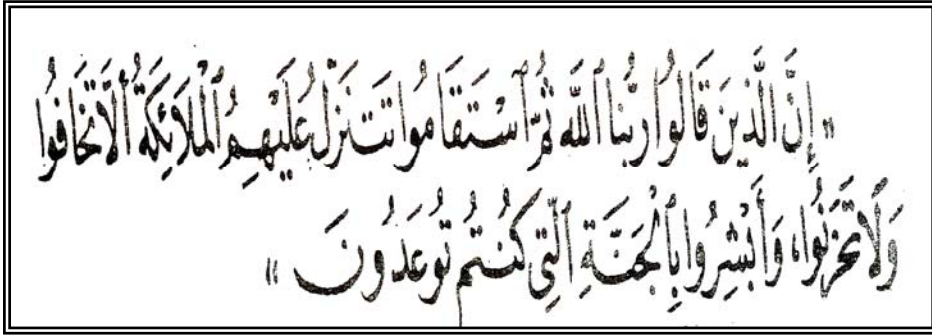 « إِنَّ الَّذِينَ قَالُوا رَبُّنَا ٱللَّه ثُمَّ ٱسْتَقَامُوا تَتَنَزَّلُ عَلَيْهِمُ ٱلْمَلَائِكَةُ أَلَّا تَخَافُوا
وَلَا تَحْزَنُوا، وَأَبْشِرُوا بِٱلْجَنَّةِ ٱلَّتِي كُنْتُمْ تُوعَدُونَ »